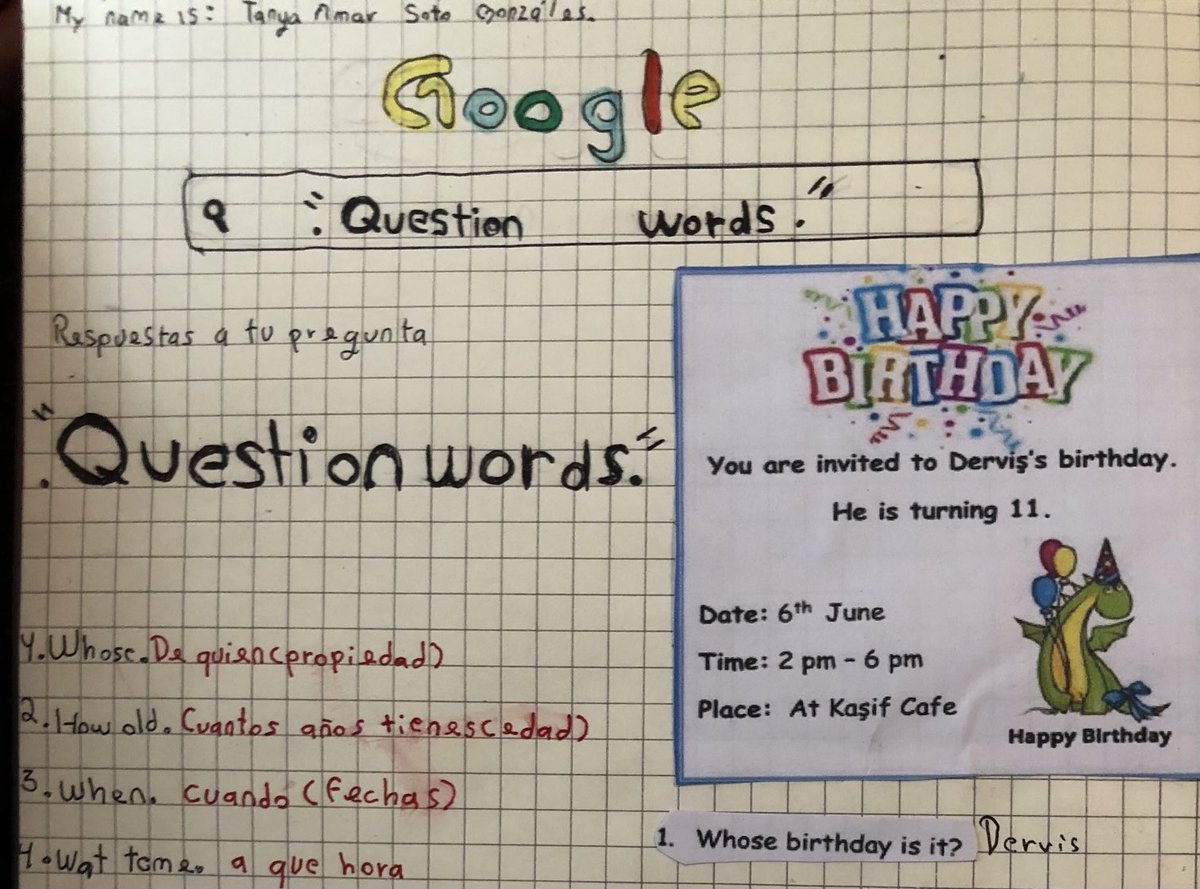 My name is: Tanya Amar Soto Gonzáles.
Google
"Question words."
Respuestas a tu pregunta
"Question words."
HAPPY
BIRTHDAY
You are invited to Derviş's birthday.
He is turning 11.
Date: 6th June
Time: 2 pm - 6 pm
Place: At Kaşif Cafe
Happy Birthday
1. Whose. De quien (propiedad)
2. How old. Cuantos años tienes (edad)
3. When. cuando (fechas)
4. Wat tame. a que hora
1. Whose birthday is it? Dervis